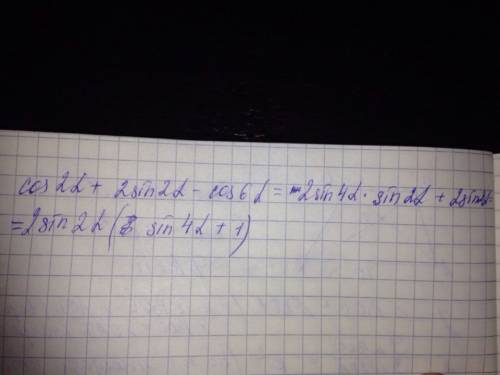 cos2α + 2sin2α - cos6α = 2sin4α · sin2α + 2sin2α
= 2sin2α ( sin4α + 1)